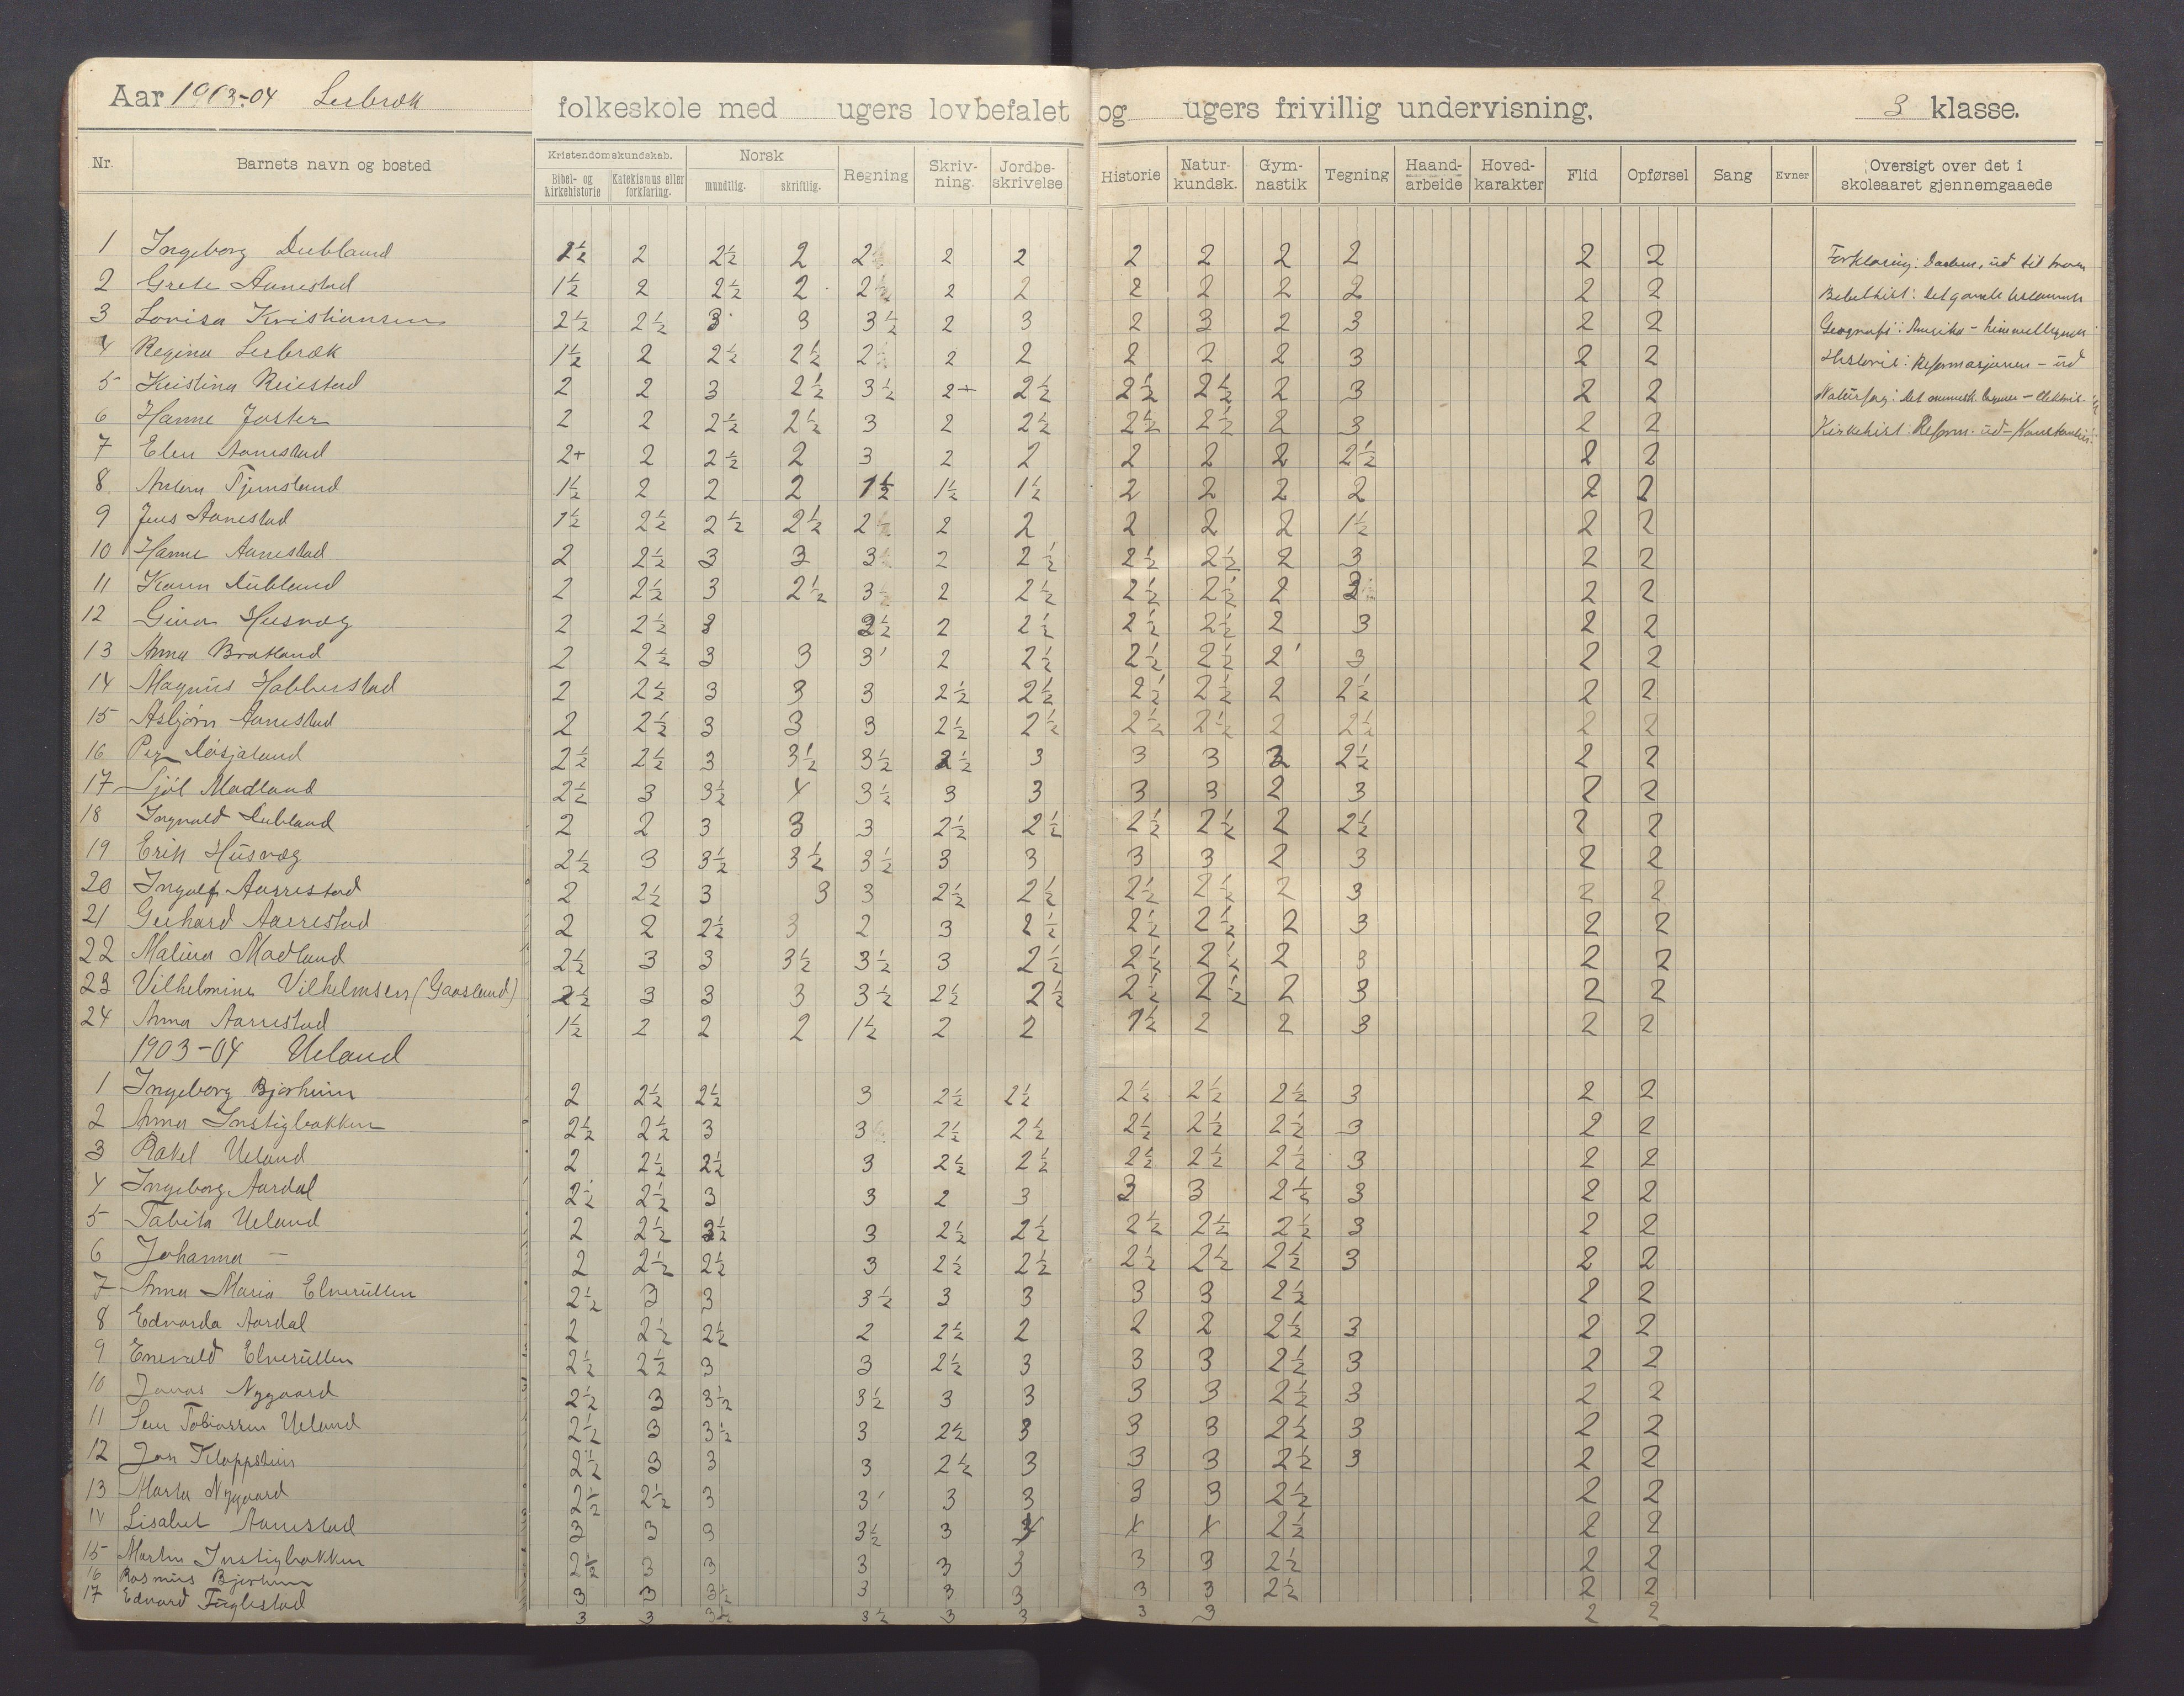 Aar 1903-04 Lerbræk folkeskole med ugers lovbefalet og ugers frivillig undervisning. 3 klasse.
Nr. Barnets navn og bosted Kristendomskundskab. Bibel- og kirkehistorie Katekismus eller forklaring. Norsk mundtlig. skriftlig. Regning Skriv-ning. Jordbe-skrivelse Historie Natur-kundsk. Gym-nastik Tegning Haand-arbeide Hoved-karakter Flid Opførsel Sang Evner Oversigt over det i skoleaaret gjennemgaaede
1 Ingeborg Dubland 2½ 2 2½ 2 2 2 2 2 2 2 2 2 2 Forklaring: ud til
2 Grete Aarrestad 1½ 2 2½ 2 2½ 2 2 2 2 2 2 2 2 Bibelhist: Det gamle
3 Lovisa Kristiansen 2½ 2½ 3 3 3½ 2 3 2 3 2 3 2 2 Geografi: Amerika -
4 Regina Lerbræk 1½ 2 2½ 2½ 2 2 2 2 2 2 3 2 2 Historie: Reformasjonen - ud
5 Kristina Reiestad 2 2 3 2½ 3½ 2+ 2½ 2½ 2½ 2 3 2 2 Naturfag: Det mennesk. legeme -
6 Hanne Joster 2 2 2½ 2½ 3 2 2½ 2½ 2½ 2 3 2 2 Kirkehist: Reform. ud -
7 Elen Aarrestad 2+ 2 2½ 2 3 2 2 2 2 2 2½ 2 2
8 Anton Tjemsland 1½ 2 2 2 1½ 1½ 1½ 2 2 2 2 2 2
9 Jens Aarrestad 1½ 2½ 2½ 2½ 2½ 2 2 2 2 2 1½ 2 2
10 Hanne Aarrestad 2 2½ 3 3 3 2 2½ 2½ 2½ 2 3 2 2
11 Karen Dubland 2 2½ 3 2½ 3 2 2½ 2½ 2½ 2 3 2 2
12 Gina Husvæg 2 2½ 3 3½ 2 2½ 2½ 2½ 2 3 2 2
13 Anna Bratland 2 2½ 3 3 3 2 2½ 2½ 2½ 2 3 2 2
14 Magnus Habberstad 2 2½ 3 3 3 2½ 2½ 2½ 2½ 2 2½ 2 2
15 Asbjørn Aarrestad 2 2½ 3 3 3 2½ 2½ 2½ 2½ 2 2½ 2 2
16 Per 2½ 2½ 3 3½ 3½ 2½ 3 3 3 2 2½ 2 2
17 Sjöl Madland 2½ 3 3½ 4 3½ 3 3 3 3 2 3 2 2
18 Ingvald Dubland 2 2 3 3 3 2½ 2½ 2½ 2½ 2 2½ 2 2
19 Erik Husvæg 2½ 3 3½ 3½ 3½ 3 3 3 3 2 3 2 2
20 Ingolf Aarrestad 2 2½ 3 3 3 2½ 2½ 2½ 2½ 2 3 2 2
21 Gerhard Aarrestad 2 2 2½ 3 2 3 2½ 2½ 2½ 2 3 2 2
22 Malina Madland 2½ 3 3 3½ 3½ 3 2½ 2½ 2½ 2 3 2 2
23 Vilhelmine Vilhelmsen (Gaasland) 2½ 3 3 3 3½ 2½ 2½ 2½ 2½ 2 3 2 2
24 Anna Aarrestad 1½ 2 2 2 1½ 2 2 1½ 2 2 3 2 2
1903-04 Ueland
1 Ingeborg Bjerheim 2 2½ 2½ 3 2½ 2½ 2½ 2½ 2½ 3 2 2
2 Anna Instigbakken 2½ 2½ 3 3 2½ 2½ 2½ 2½ 2½ 3 2 2
3 Rakel Ueland 2 2½ 2½ 3 2½ 2½ 2½ 2½ 2½ 3 2 2
4 Ingeborg Aardal 2½ 2½ 3 3 2 3 3 3 2½ 3 2 2
5 Tabita Ueland 2 2½ 2½ 3 2½ 2½ 2½ 2½ 2½ 3 2 2
6 Johanna - 2 2½ 2½ 3 2½ 2½ 2½ 2½ 2½ 3 2 2
7 Anna Maria Elverullen 2½ 3 3 3½ 3 3 3 3 2½ 2 2
8 Edvarda Aardal 2 2½ 2½ 2 2½ 2 2 2 2½ 3 2 2
9 Enevald Elverullen 2½ 2½ 3 3 2½ 3 3 3 2½ 3 2 2
10 Jonas Nygaard 2½ 3 3½ 3½ 3 3 3 3 2½ 3 2 2
11 Sem Tobiassen Ueland 2½ 3 3½ 3 2½ 3 3 3 2½ 3 2 2
12 Jon Kloppstein 2½ 3 3 3 2½ 3 3 3 2½ 3 2 2
13 Marta Nygaard 2½ 2½ 3 3 3 3 3 3 2½ 2 2
14 Lisabet Aarrestad 3 3 3 3½ 3 4 4 4 2½ 2 2
15 Martin Instigbakken 2½ 3 3 3 3 3 3 3 2½ 2 2
16 Rasmus Bjerheim 3 3 3½ 3 3 3 3 3 2½ 2 2
17 Edvard Fuglestad 3 3 3½ 3½ 3 3 3 3 2 2